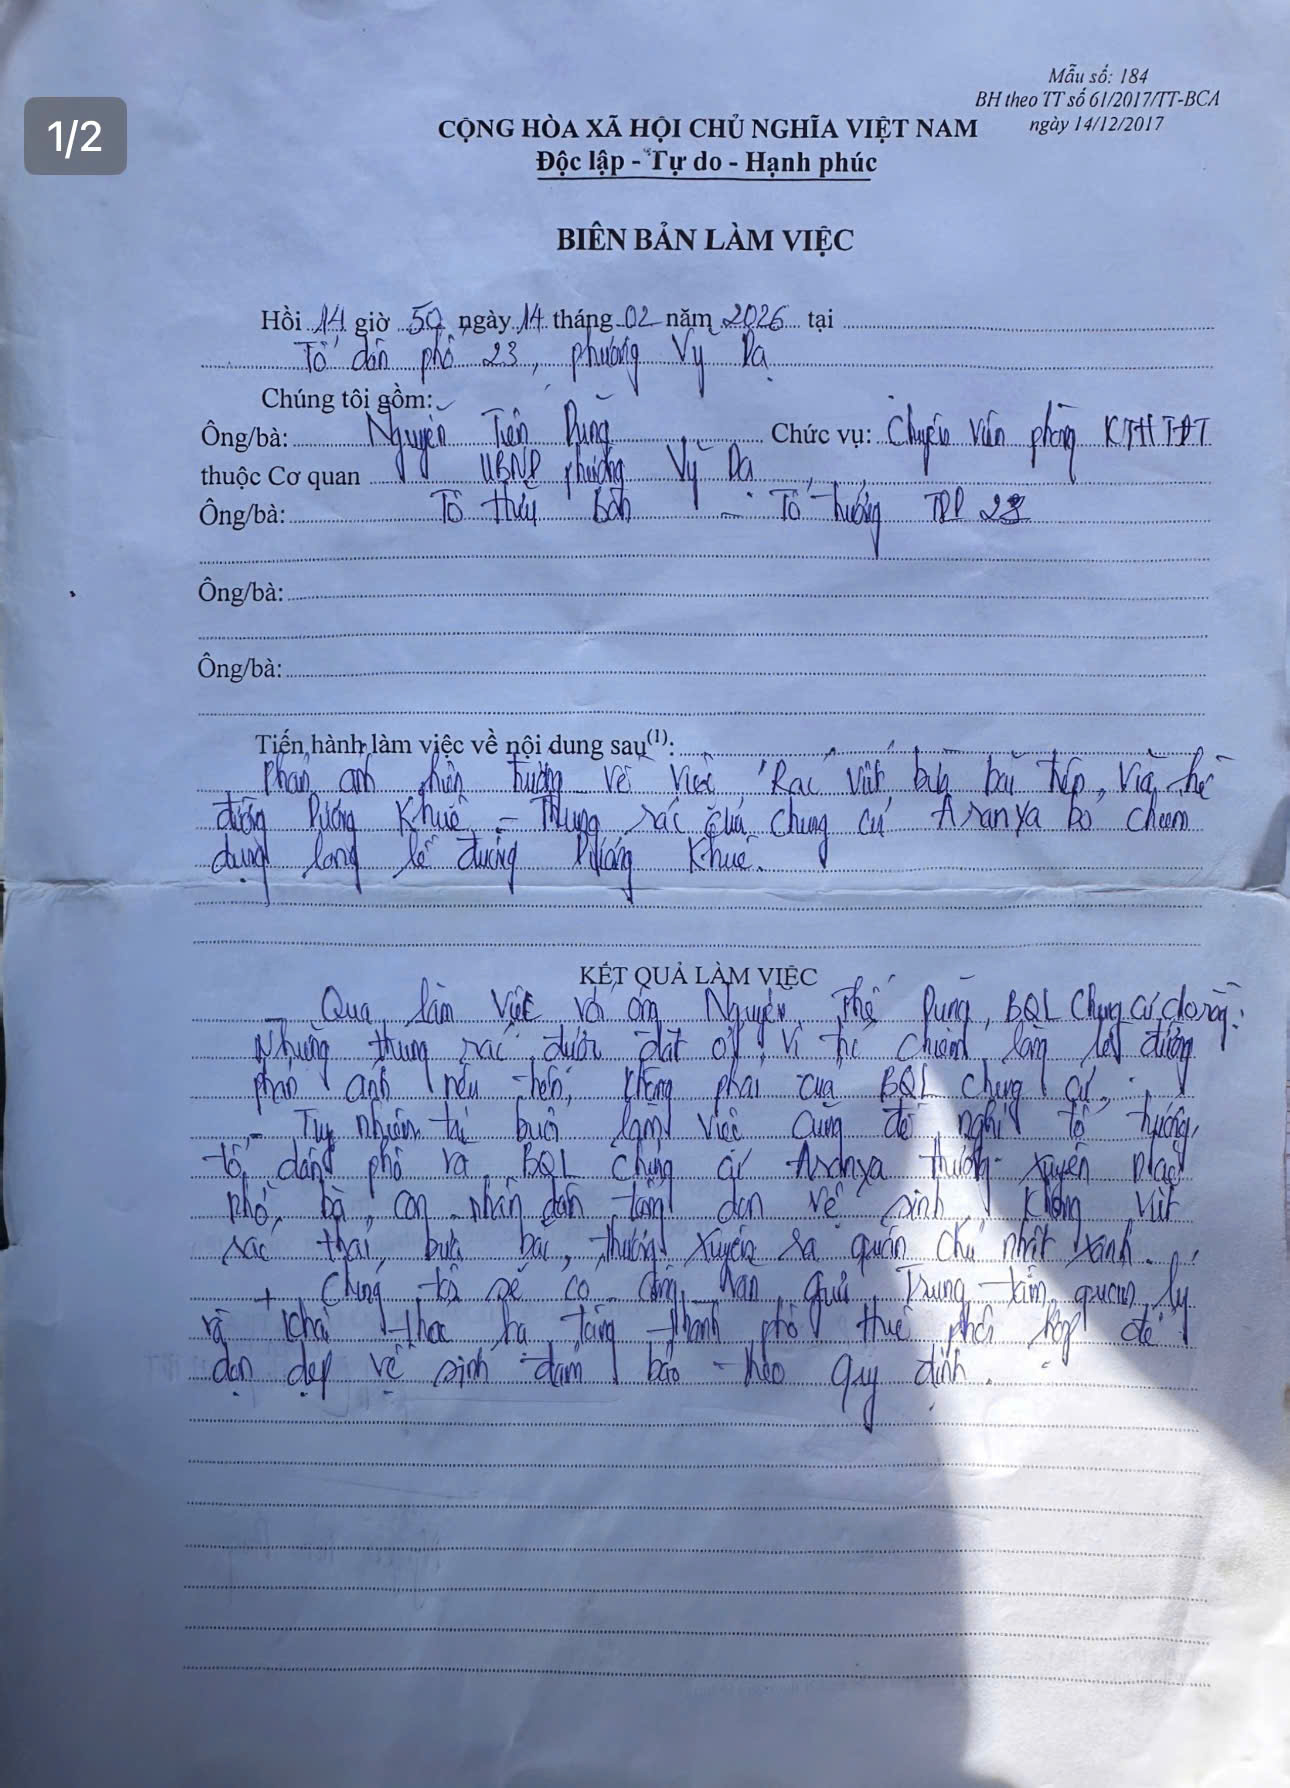 1/2
Mẫu số: 184
BH theo TT số 61/2017/TT-BCA
ngày 14/12/2017
CỘNG HÒA XÃ HỘI CHỦ NGHĨA VIỆT NAM
Độc lập - Tự do - Hạnh phúc
BIÊN BẢN LÀM VIỆC
Hồi 14 giờ 50 ngày 14 tháng 02 năm 2026 tại
Tổ dân phố 23, phường Vỹ Dạ
Chúng tôi gồm:
Ông/bà: Nguyễn Tiến Dũng Chức vụ: Chuyên viên phòng KTHTĐT
thuộc Cơ quan UBND phường Vỹ Dạ
Ông/bà: Tô Thúy - Tổ trưởng TDP 23
Ông/bà:
Ông/bà:
Tiến hành làm việc về nội dung sau(1):
Phản ánh hiện trường về việc "Rác vứt bừa bãi trên vỉa hè
đường Dương Khuê - Thùng rác của chung cư Aranya bỏ chiếm
dụng lòng lề đường Dương Khuê.
KẾT QUẢ LÀM VIỆC
- Qua làm việc với ông Nguyễn Thế Dũng, BQL Chung cư cho rằng:
Những thùng rác được đặt ở vị trí chiếm lòng lề đường
phản ánh nêu trên, không phải của BQL chung cư.
- Tuy nhiên tại buổi làm việc cũng đề nghị tổ trưởng
tổ dân phố và BQL chung cư Aranya thường xuyên nhắc
nhở bà con nhân dân dọn vệ sinh, không vứt
rác thải bừa bãi, thường xuyên ra quân chủ nhật xanh.
+ Chúng tôi sẽ có công văn gửi Trung tâm quản lý
và khai thác hạ tầng thành phố Huế phối hợp để
dọn dẹp vệ sinh đảm bảo theo quy định.